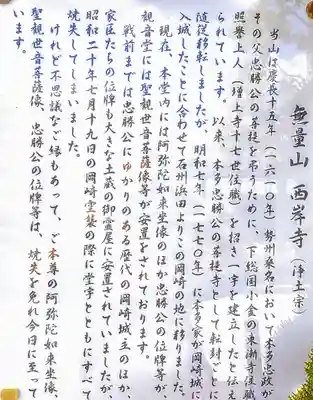 無量山 西岸寺（浄土宗）
当山は慶長十五年（一六一〇年）勢州桑名において本多忠政が
その父忠勝公の菩提を弔うために、下総国小金の東漸寺住職
照誉上人（増上寺十七世住職）を招き一宇を建立したと伝え
られています。以来、本多忠勝公の菩提寺として転封ごとに
随従移転しましたが、明和七年（一七七〇年）に本多家が岡崎城に
入城したことに合わせて石州浜田よりこの岡崎の地に移りました。
現在、本堂内には阿弥陀如来坐像のほか忠勝公の位牌等が、
観音堂には聖観世音菩薩像等が安置をされております。
戦前までは忠勝公にゆかりのある歴代の岡崎城主のほか、
家臣たちの位牌も大きな土蔵の御霊屋に安置されていましたが、
昭和二十年七月十九日の岡崎空襲の際に堂宇とともにすべて
焼失してしまいました。
けれど不思議なご縁もあって、ご本尊の阿弥陀如来坐像、
聖観世音菩薩像、忠勝公の位牌等は、焼失を免れ今日に至って
います。